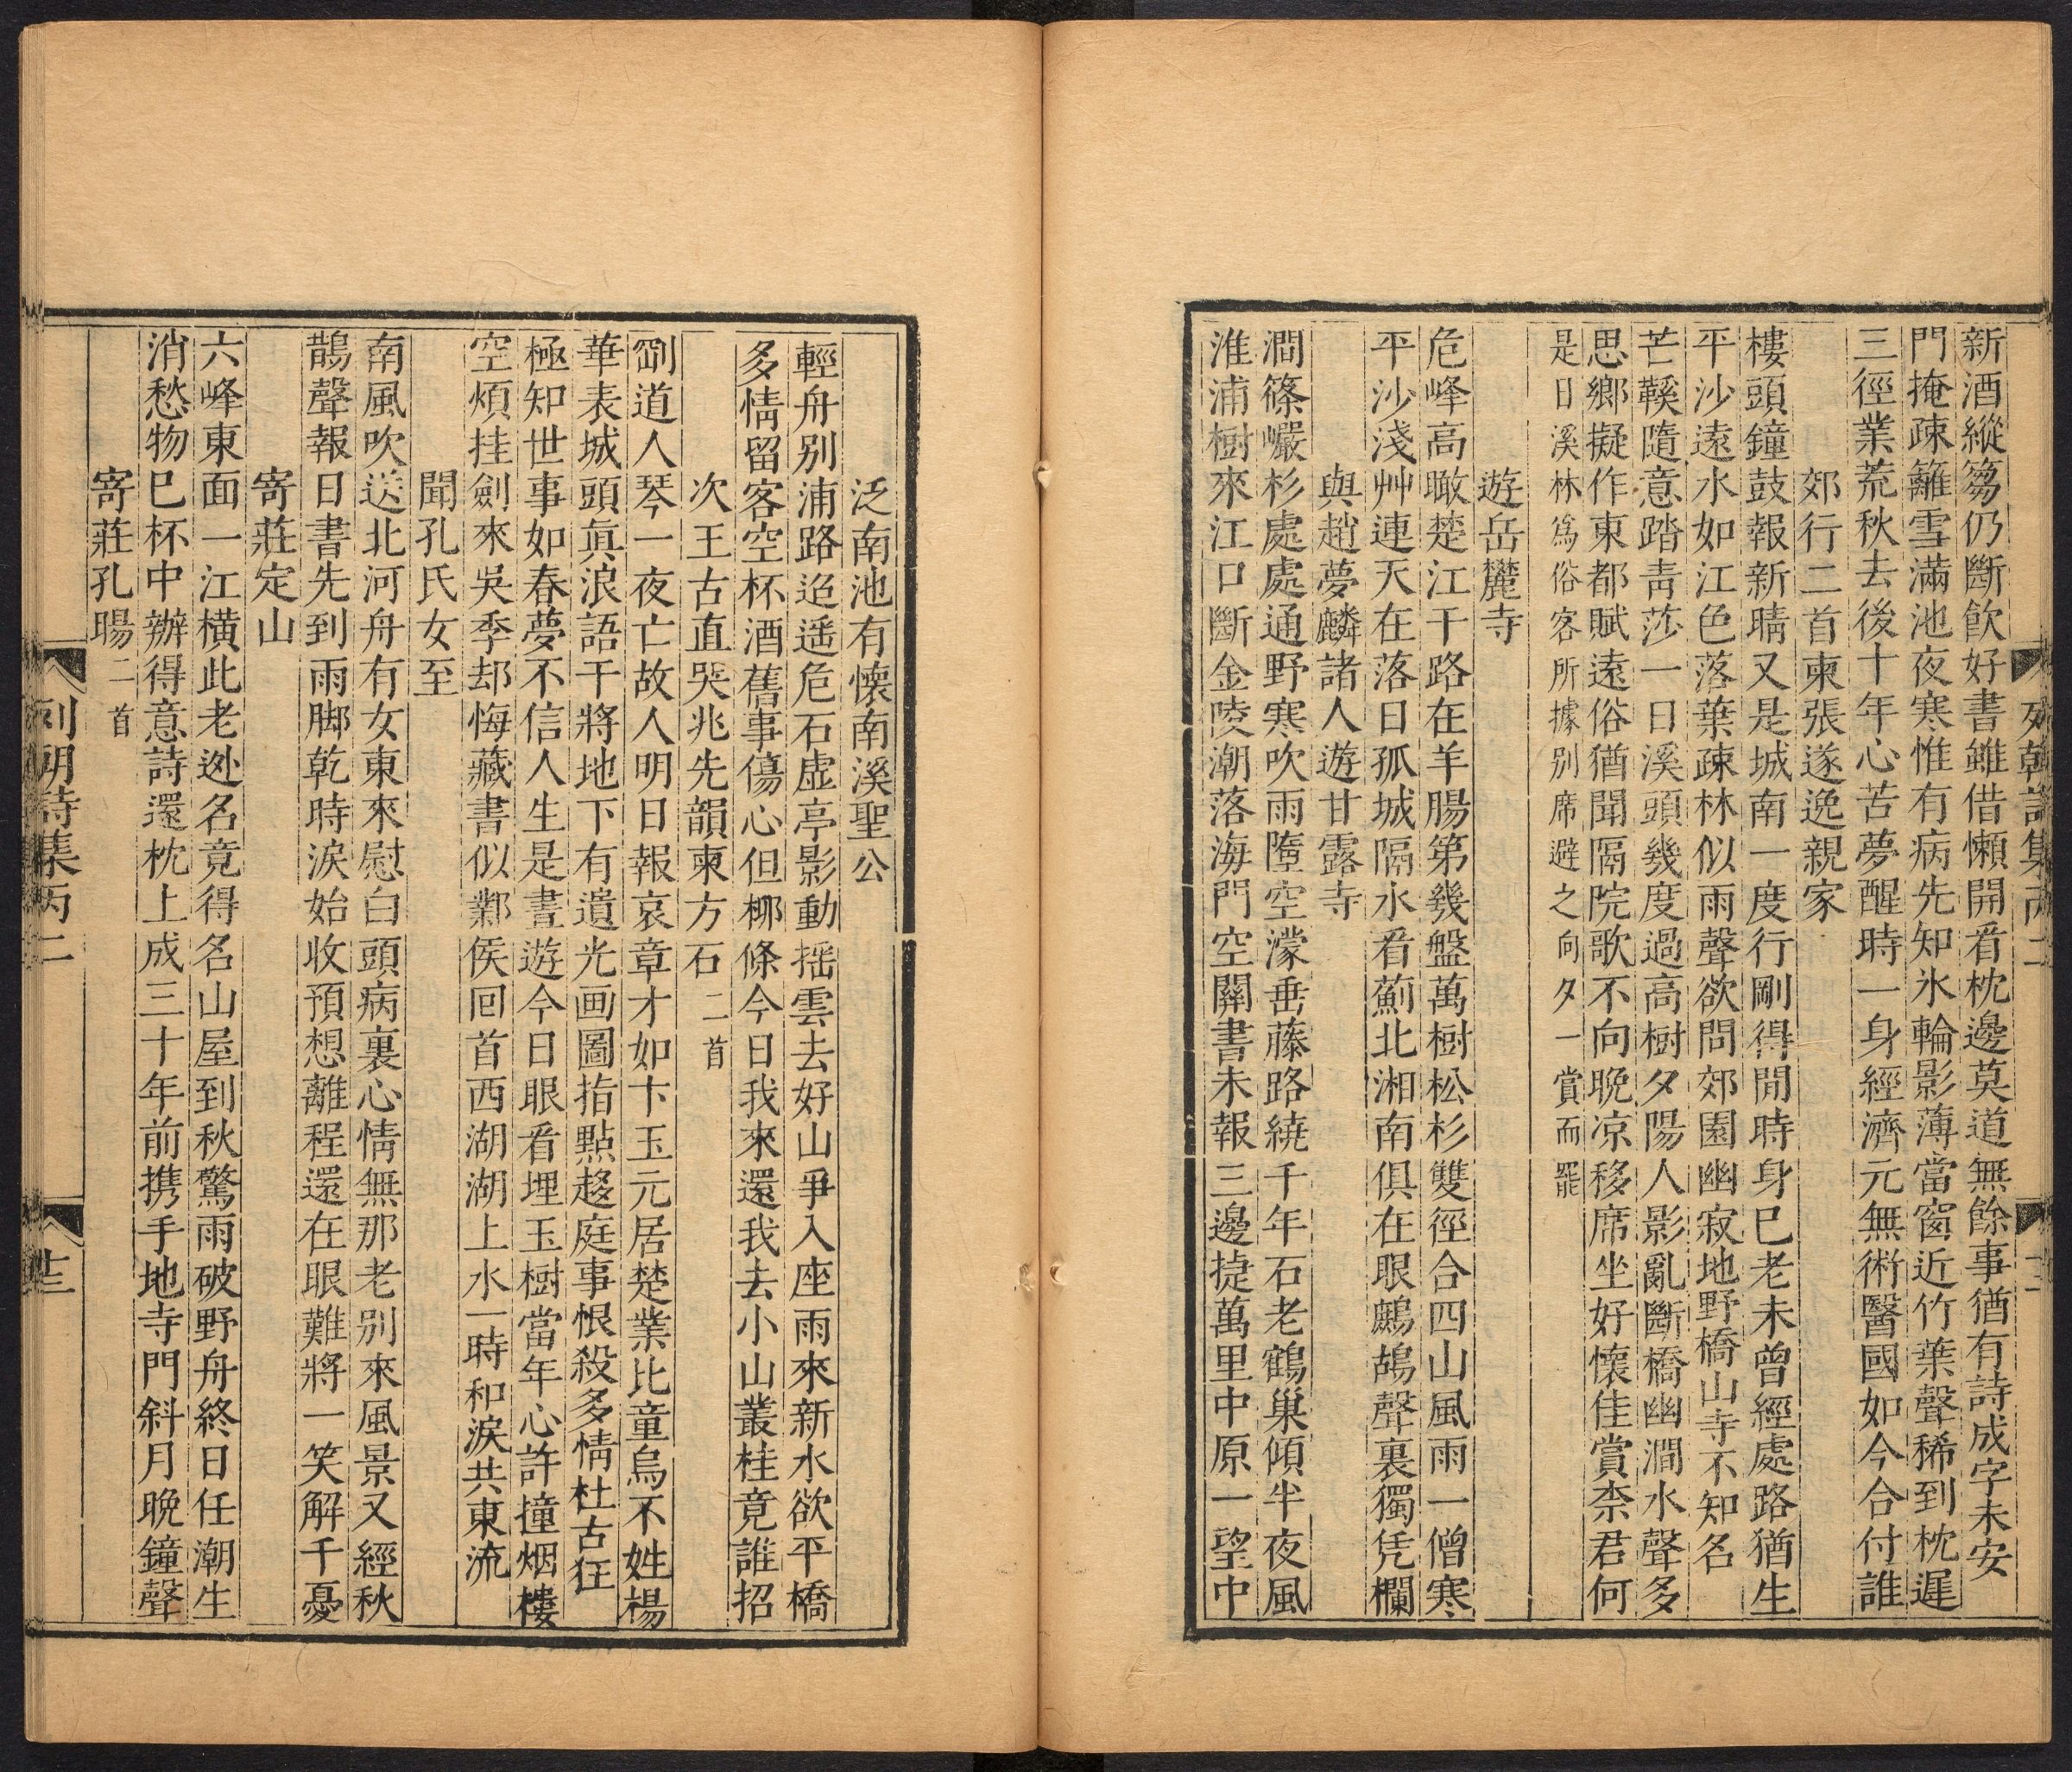 新酒縱篘仍斷飲好書雖借懶開看枕邊莫道無餘事猶有詩成字未安
門掩疎籬雪滿池夜寒惟有病先知氷輪影薄當窗近竹葉聲稀到枕遲
三徑業荒秋去後十年心苦夢醒時一身經濟元無術醫國如今合付誰
郊行二首柬張遂逸親家
樓頭鐘鼓報新晴又是城南一度行剛得閒時身已老未曾經處路猶生
平沙遠水如江色落葉疎林似雨聲欲問郊園幽寂地野橋山寺不知名
芒鞵隨意踏靑莎一日溪頭幾度過高樹夕陽人影亂斷橋幽澗水聲多
思鄉擬作東都賦遠俗猶聞隔院歌不向晚凉移席坐好懷佳賞柰君何
是日溪林爲俗客所據别席避之向夕一賞而罷
遊岳麓寺
危峰高瞰楚江干路在羊腸第幾盤萬樹松杉雙徑合四山風雨一僧寒
平沙淺艸連天在落日孤城隔水看薊北湘南俱在眼鷓鴣聲裏獨凭欄
與趙夢麟諸人遊甘露寺
澗篠巖杉處處通野寒吹雨墮空濛垂藤路繞千年石老鶴巢傾半夜風
淮浦樹來江口斷金陵潮落海門空關書未報三邊捷萬里中原一望中
泛南池有懷南溪聖公
輕舟别浦路迢遥危石虚亭影動摇雲去好山爭入座雨來新水欲平橋
多情留客空杯酒舊事傷心但栁條今日我來還我去小山叢桂竟誰招
次王古直哭兆先韻柬方石二首
劉道人琴一夜亡故人明日報哀章才如卞玉元居楚業比童烏不姓楊
華表城頭眞浪語干將地下有遺光画圖指點趍庭事恨殺多情杜古狂
極知世事如春夢不信人生是晝遊今日眼看埋玉樹當年心許撞烟樓
空煩挂劍來吳季却悔藏書似鄴侯回首西湖湖上水一時和淚共東流
聞孔氏女至
南風吹送北河舟有女東來慰白頭病裏心情無那老别來風景又經秋
鵲聲報日書先到雨脚乾時淚始收預想離程還在眼難將一笑解千憂
寄莊定山
六峰東面一江横此老迯名竟得名山屋到秋驚雨破野舟終日任潮生
消愁物已杯中辦得意詩還枕上成三十年前携手地寺門斜月晚鐘聲
寄莊孔暘二首
列朝詩集丙二